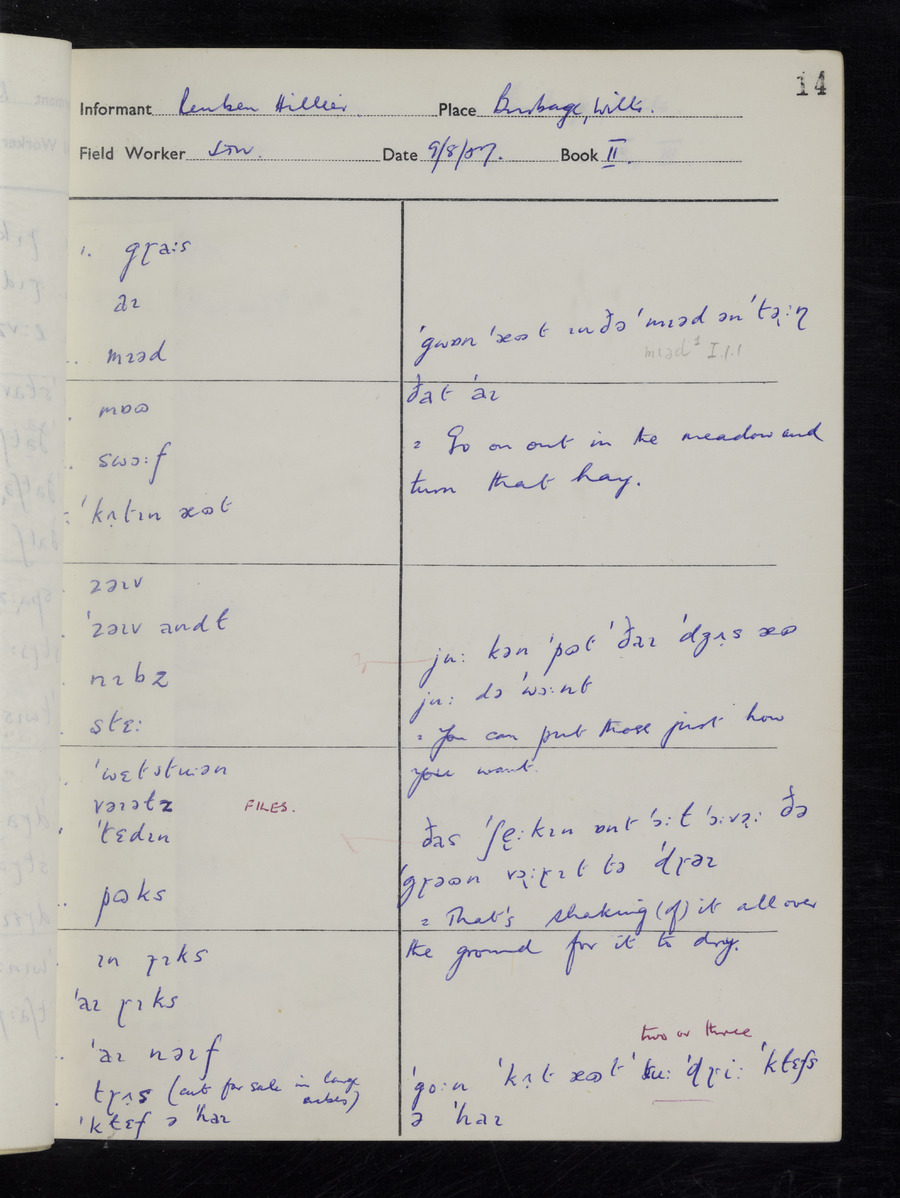 14
Informant Reuben Hillier Place Burbage, Wilts.
Field Worker Date 9/8/57. Book II.
gɽa:s
aɪ
mɪəd
mɒɷ
swɔ:f
ˈkʌtɪn æɷt
zəɪv
ˈzəɪv andt
nɪbz
stɛ:
ˈwɛtstuən
vəɪətz FILES.
ˈtɛdɪn
pɷks
ɪn ɽɪks
ˈaɪ ɽɪks
ˈaɪ nəɪf
tɽʌs (cut for sale in large
cubes)
ˈktɛf ə ˈhaɪ
ˈgwɒn ˈæɷt ɪn ðə ˈmɪəd ən ˈtəɽ:ŋ
mɪəd¹ I.1.1
ðat ˈaɪ
= Go on out in the meadow and
turn that hay.
ju: kən ˈpɷt ˈðaɪ ˈdʒʌs æɷ
ju: də ˈwɔ:nt
= You can put those just how
you want.
ðas ˈʃɛ:kɪn ɒnt ˈɔ:t ˈɔ:vəɽ: ðə
ˈgɽəɷn vəɽ:ɽɪt tə ˈdɽəɪ
= That's shaking (of) it all over
the ground for it to dry.
two or three
ˈgo:n ˈkʌt æɷt ˈtu: ˈdɽi: ˈktɛfs
ə ˈhaɪ